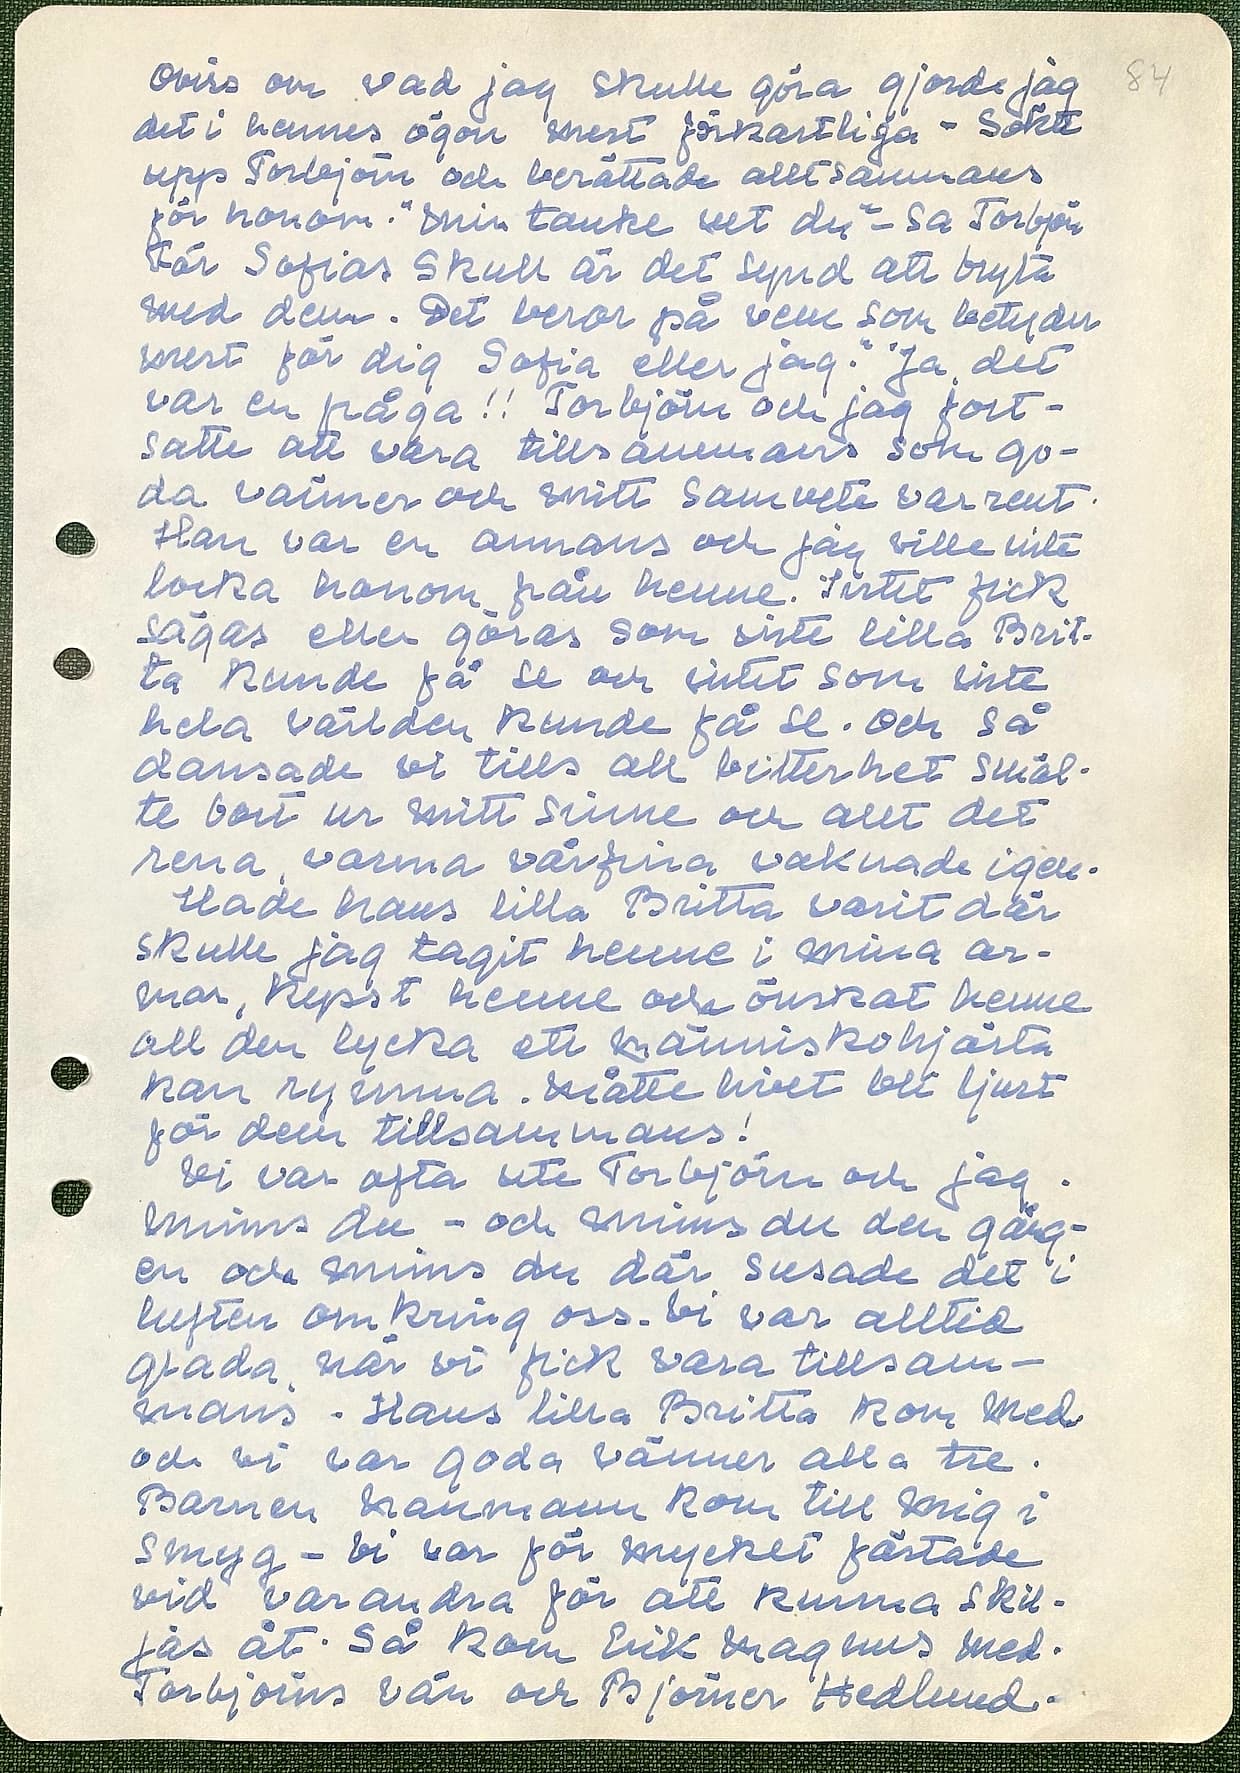 84
Oviss om vad jag skulle göra gjorde jag
det i hennes ögon mest förkastliga - Sökte
upp Torbjörn och berättade alltsammans
för honom. "Min tanke vet du" - Sa Torbjörn
För Sofias Skull är det synd att bryta
med dem. Det beror på vem som betyder
mest för dig Sofia eller jag." Ja, det
var en fråga!! Torbjörn och jag fort-
satte att vara tillsammans som go-
da vänner och mitt samvete var rent.
Han var en annans och jag ville inte
locka honom från henne. Intet fick
sägas eller göras som inte lilla Brit-
ta kunde få se och intet som inte
hela världen kunde få se. Och så
dansade vi tills all bitterhet smäl-
te bort ur mitt sinne och allt det
rena, varma vårfina vaknade igen.
Hade hans lilla Britta varit där
skulle jag tagit henne i mina ar-
mar, kysst henne och önskat henne
all den lycka ett människohjärta
kan rymma. Måtte livet bli ljust
för dem tillsammans!
Vi var ofta ute Torbjörn och jag.
Minns du - och minns du den gång-
en och minns du där susade det i
luften omkring oss. Vi var alltid
glada, när vi fick vara tillsam-
mans. Hans lilla Britta kom med
och vi var goda vänner alla tre.
Barnen Naumann kom till mig i
smyg - Vi var för mycket fästade
vid varandra för att kunna skil-
jas åt. Så kom Erik Magnus med.
Torbjörns vän och Björner Hedlund.